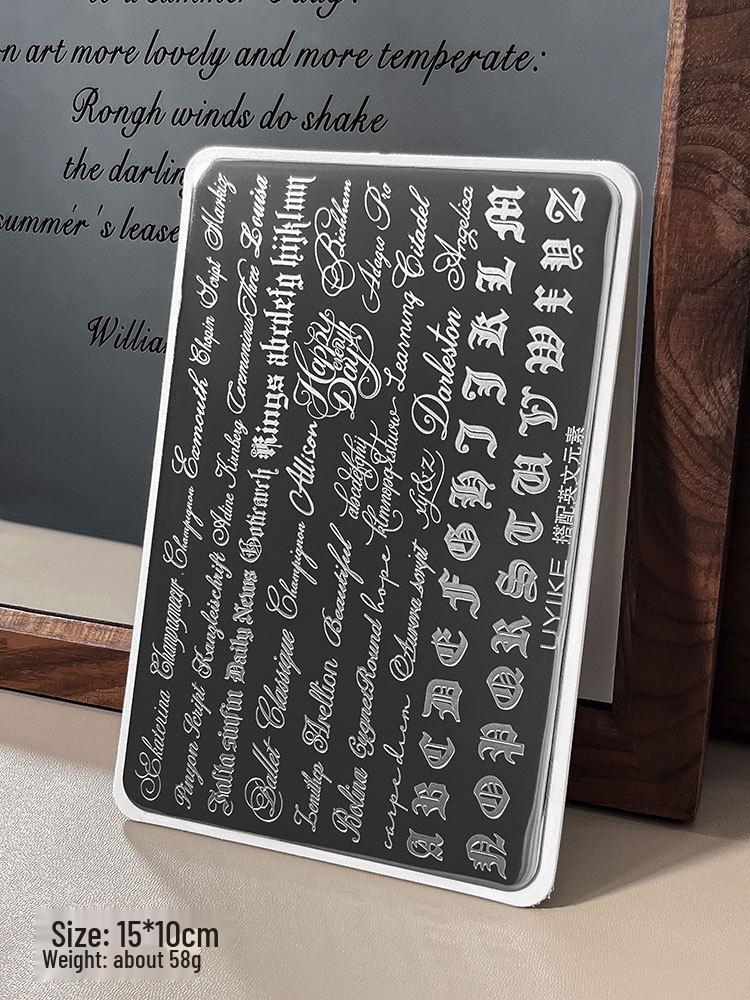 n art more lovely and more temperate:
Rongh winds do shake
the darlin
summér's lease
Willia
Ekaterina Champagner Champignon Exmouth Chopin Script Markiz
Pinyon Script Kanzleischrift Aline CeremoniousThree Louisa
Julia sinfin Daily News Goticarch Kings abcdefg hijklmn
Ballet Classique Champignon Allison Happy every Day Bickham
Arellion Beautiful Adage Pro
Bolina CygnetRound hope Learning Citadel
carpe diem Aurora script Darleston Angelica
A B C D E F G H I J K L M
N O P Q R S T U V W X Y Z
UYIKE 搭配英文元素
Size: 15*10cm
Weight: about 58g